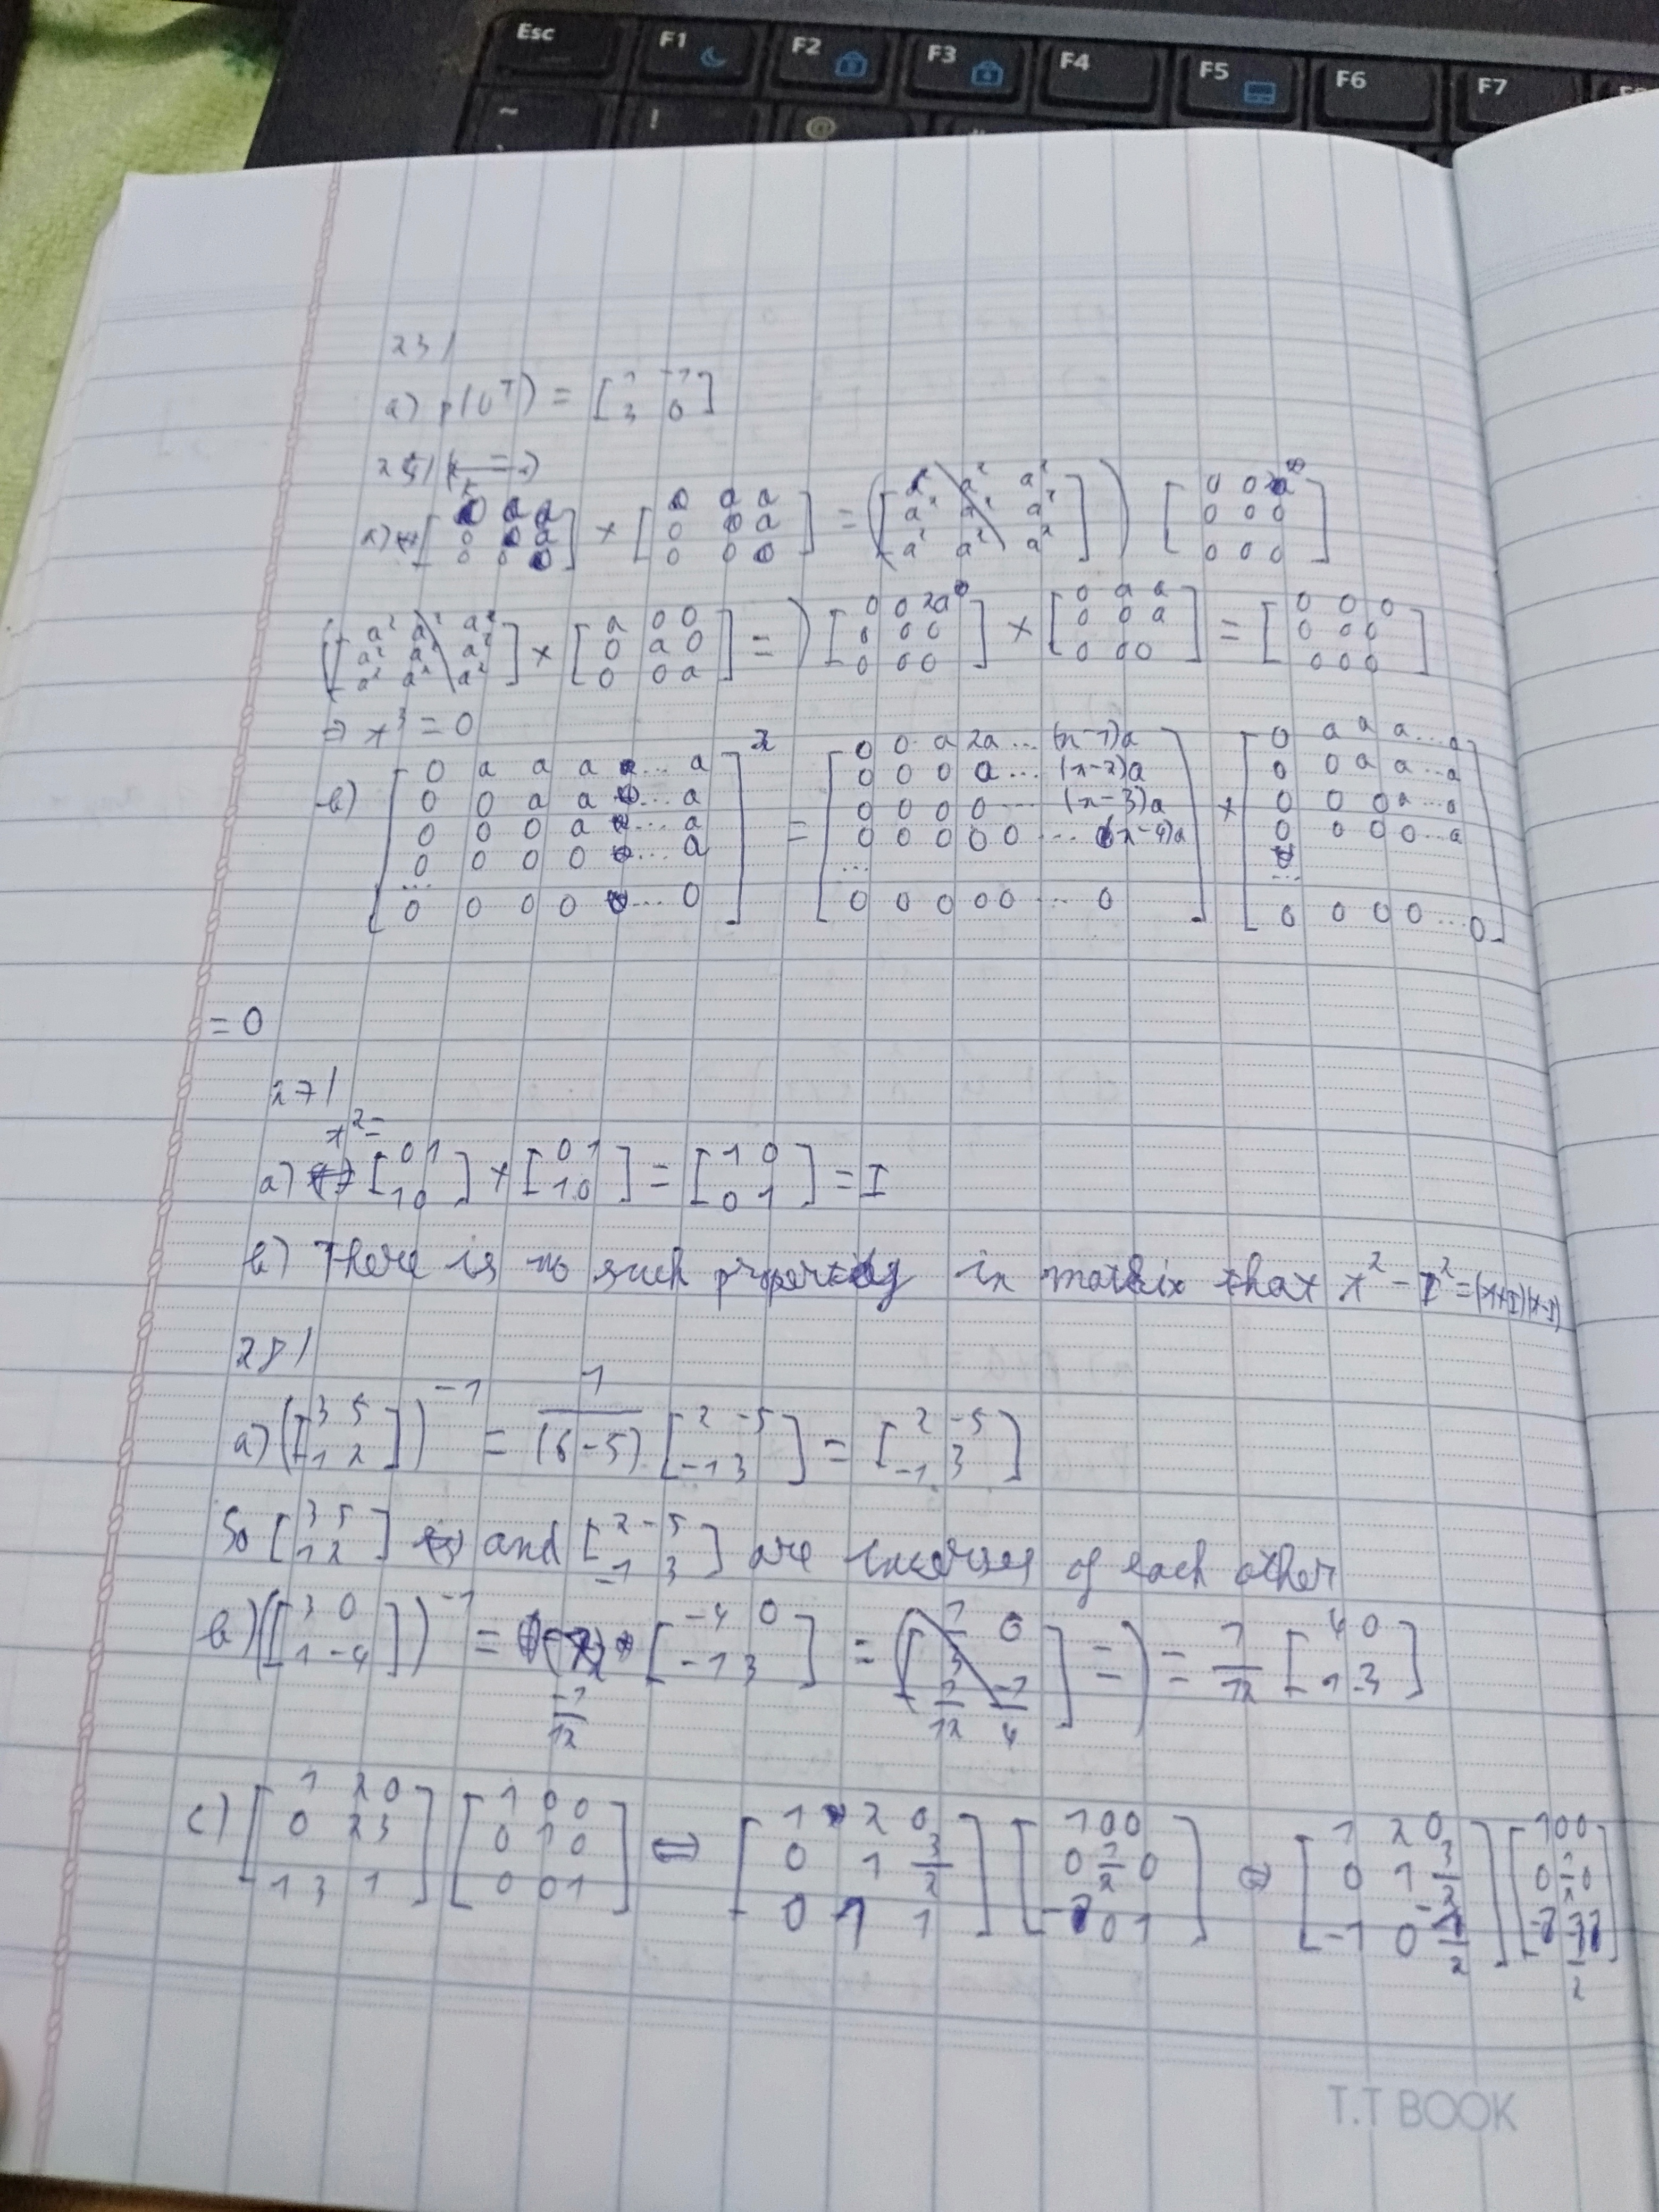 Esc F1 F2 F3 F4 F5 F6 F7
~ ! @
23/
a) p(U^T) = [1 -1; 3 0]
25/
a) [0 a a; 0 0 a; 0 0 0] × [0 a a; 0 0 a; 0 0 0] = ([a² a² a²; a² a² a²; a² a² a²]) [0 0 a²; 0 0 0; 0 0 0]
([a² a² a²; a² a² a²; a² a² a²] × [a 0 0; 0 a 0; 0 0 a] =) [0 0 2a; 0 0 0; 0 0 0] × [0 a a; 0 0 a; 0 0 0] = [0 0 0; 0 0 0; 0 0 0]
⇒ x³ = 0
b) [0 a a a ... a; 0 0 a a ... a; 0 0 0 a ... a; 0 0 0 0 ... a; ... 0 0 0 0 ... 0] = [0 0 a 2a ... (n-1)a; 0 0 0 a ... (n-2)a; 0 0 0 0 ... (n-3)a; 0 0 0 0 0 ... (n-4)a; ... 0 0 0 0 0 ... 0] × [0 a a a ... a; 0 0 a a ... a; 0 0 0 a ... a; 0 0 0 0 ... a; ... 0 0 0 0 ... 0]
= 0
27/
x² =
a) [0 1; 1 0] × [0 1; 1 0] = [1 0; 0 1] = I
b) There is no such property in matrix that x² - I² = (x+I)(x-I)
28/
a) ([3 5; 1 2])^-1 = 1/(6-5) [2 -5; -1 3] = [2 -5; -1 3]
So [3 5; 1 2] and [2 -5; -1 3] are inverses of each other
b) ([3 0; 1 -4])^-1 = -1/12 [-4 0; -1 3] = ([1/3 0; 1/12 -1/4] =) = 1/12 [4 0; 1 -3]
c) [1 2 0; 0 2 3; 1 3 1] [1 0 0; 0 1 0; 0 0 1] ⇔ [1 2 0; 0 1 3/2; 0 1 1] [1 0 0; 0 1/2 0; -1 0 1] ⇔ [1 2 0; 0 1 3/2; -1 0 -1/2] [1 0 0; 0 1/2 0;
T.T BOOK